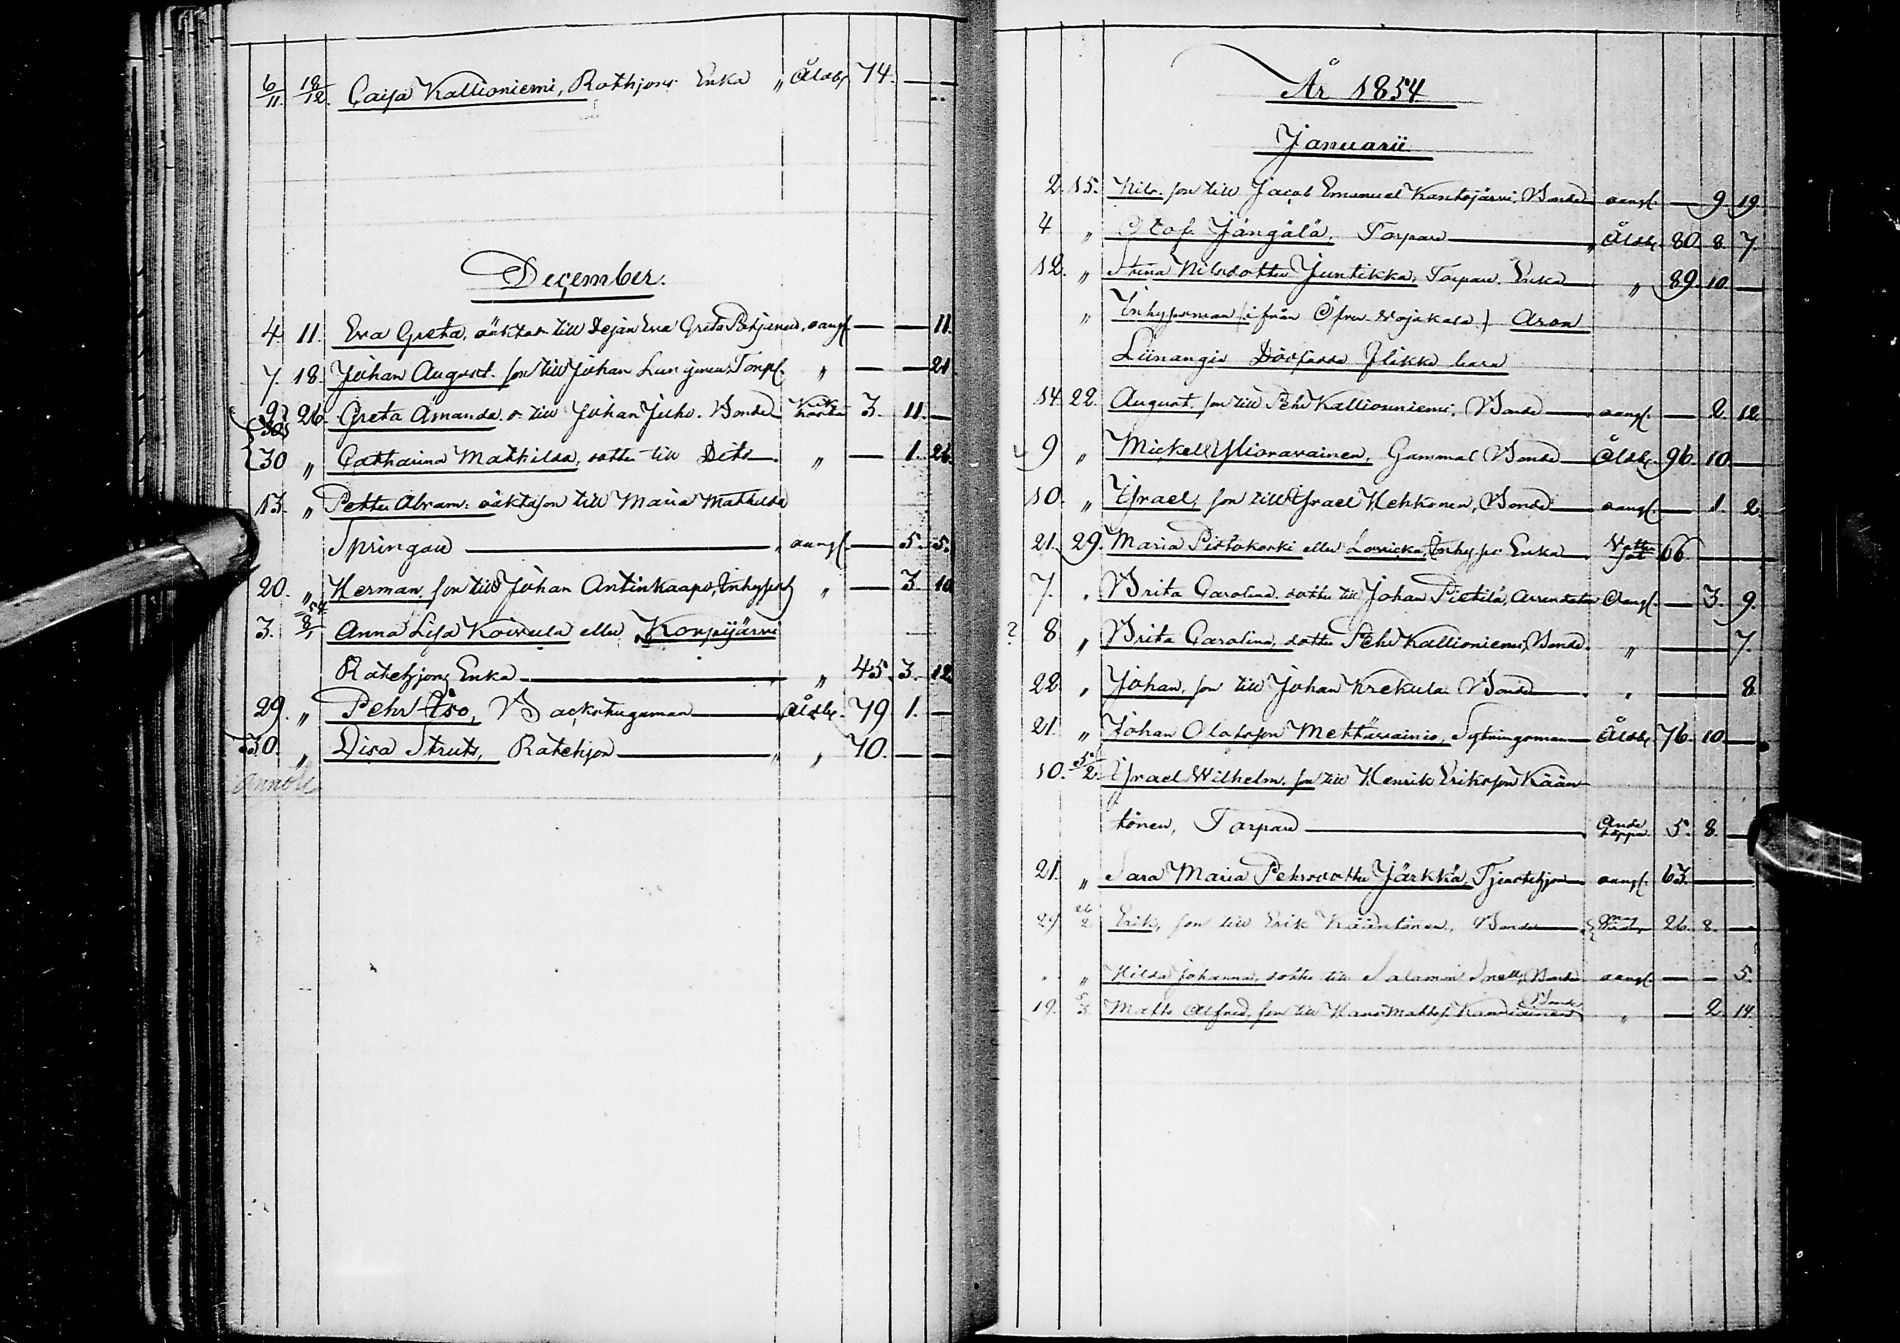 6/11. 18/12. Caisa Kallioniemi, Rothjons Enka " Åldsk 74. —
December.
4. 11. Eva Greta, oäkta dr till Pejan Eva Greta, oangf. — — 11.
7. 18. Johan August. son till Johan Torpf. " — — 21
9. 26. Greta Amanda. dr till Johan Juho. Bonde 3. 11. —
30 " Catharina Mathilda, dotter till Dito — " — 1. 26.
13. " Petter Abram. oäkta son till Maria Mathilda
Springare — " oangf. — 5. 5.
20. " Herman, son till Johan Antinkaapo, Inhyses " — 3. 10
3. 8/1 54 Anna Lisa Koivula eller Korpijärvi
Enka — " 45. 3. 12
29. " Pehr Iso, Backstugaman — Åldsk. 79 1. —
30. " Lisa Struts, Rotehjon — " " 70. — —
År 1854
Januarii
2. 15. Nils. son till Jacob Emanuel Kantojärvi, Bonde oangf. — 9. 19.
4 " Olof Jängälä. Torpare — " Åldsk. 80. 8. 7.
12. " Stina Nilsdotter Juntikka, Torpare Enka " 89. 10. —
" Inhysesman (ifrån Öfre Wojakala) Aron
Liinangis Flicka bara
14. 22. August, son till Pehr Kallioniemi, Bonde — oangf. — 2. 12.
9 " Mickell Ylionavainen, Gammal Bonde Åldsk. 96. 10. —
10. " Israel, son till Israel Hekkonen, Bonde — oangf. — 1. 2.
21. 29. Maria Pistokoski eller Lovicka, Inhyses Enka 66 — —
7. " Brita Carolina, dotter till Johan Pietilä, Arrendator Oangf. — 3. 9.
? 8. " Brita Carolina, dotter Pehr Kallioniemi, Bonde. " — — 7.
22. " Johan, son till Johan Krekula Bonde " — — 8
21. " Johan Olofsson Mettävainio, Sytningsman Åldsk. 76. 10. —
10. 5/2. Israel Wilhelm. son till Henrik Eriksson Kään
tönen, Torpare — Andtäppa 5. 8. —
21. " Sara Maria Pehrsdotter Järkkä, Tjenstehjon oangf. 63. — —
29 26/2 Erik, son till Erik Kääntönen, Bonde — 26. 8. —
" " Hilda Johanna, dotter till Salamon Snell, Bonde oangf. — — 5.
19. 5/3 Matts Alfred, son till Hans Mattsf. Bonde " — 2. 14.